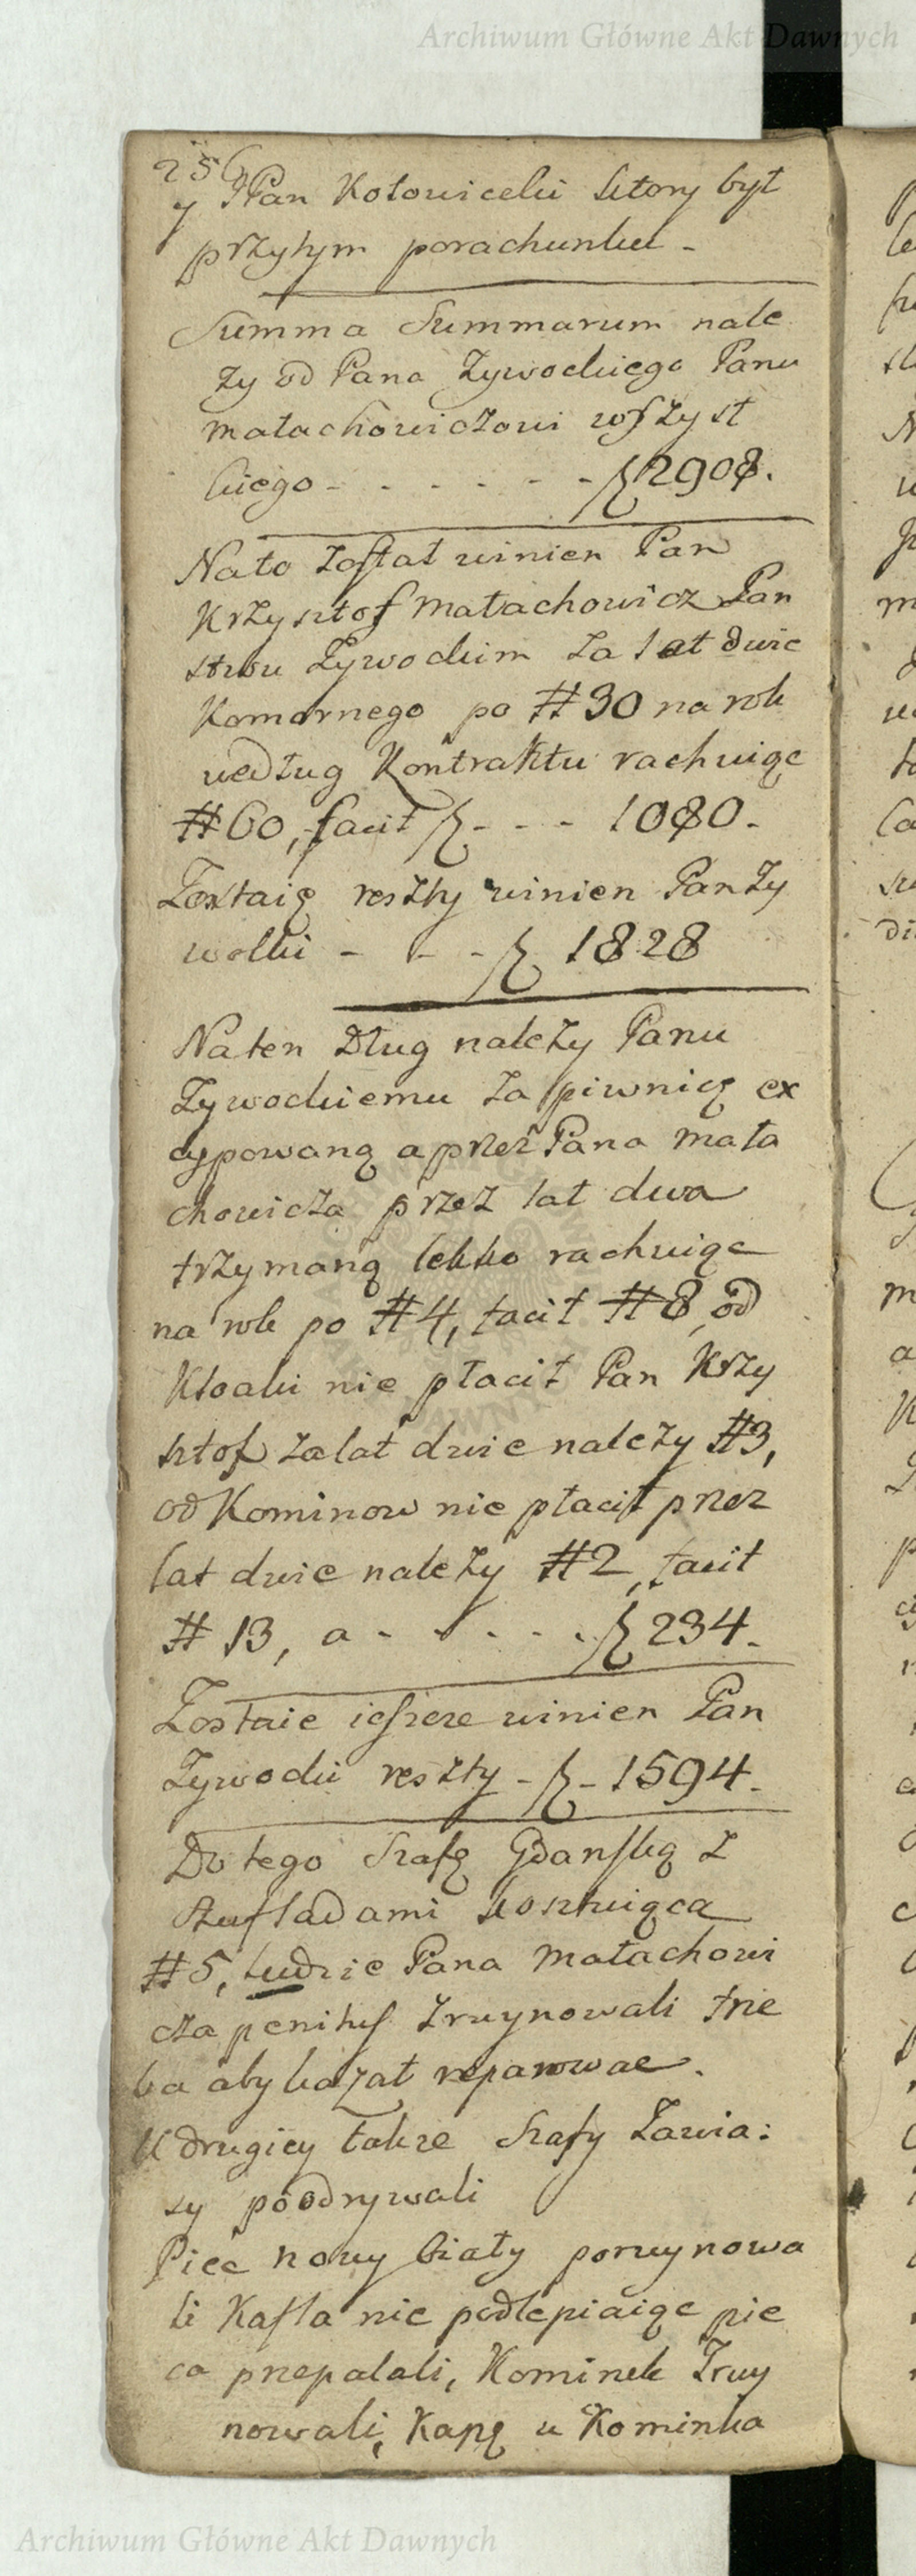 Archiwum Główne Akt Dawnych
256
y JPan Kotowicelii ktory był
przytym porachunku -
Summa Summarum nale
zy od Pana Zywockiego Panu
Małachowiczowi wszyst
kiego - - - - - - - ƒ 2908.
Nato został winien Pan
Krzysztof Małachowicz Pan
stwu Zywockim za lat dwie
Komornego po # 30 na rok
według Kontraktu rachuiąc
# 60, facit ƒ - - - 1080.
Zostaię reszty winien Pan Zy
wocki - - - ƒ 1828
Na ten Dług należy Panu
Zywockiemu za piwnicę ex
cypowaną a przez Pana Mała
chowicza przez lat dwa
trzymaną lekko rachuiąc
na rok po # 4, facit # 8, od
Kloaki nie płacił Pan Krzy
sztof za lat dwie należy # 3,
od Kominow nie płacił przez
lat dwie należy # 2, facit
# 13, a - - - - - ƒ 234.
Zostaie ieszcze winien Pan
Zywocki reszty - ƒ - 1594.
Do tego Szafę Gdanską z
szufladami kosztuiąca
# 5, ludzie Pana Małachowi
cza penitus zruynowali trze
ba aby kazał reparowac.
U drugiey takze Szafy Zawia:
sy poodrywali
Piec nowy biały poruynowa
li Kafla nie podlepiaiąc pie
ca przepalali, Kominek Zruy
nowali, Kapę u Kominka
Archiwum Główne Akt Dawnych